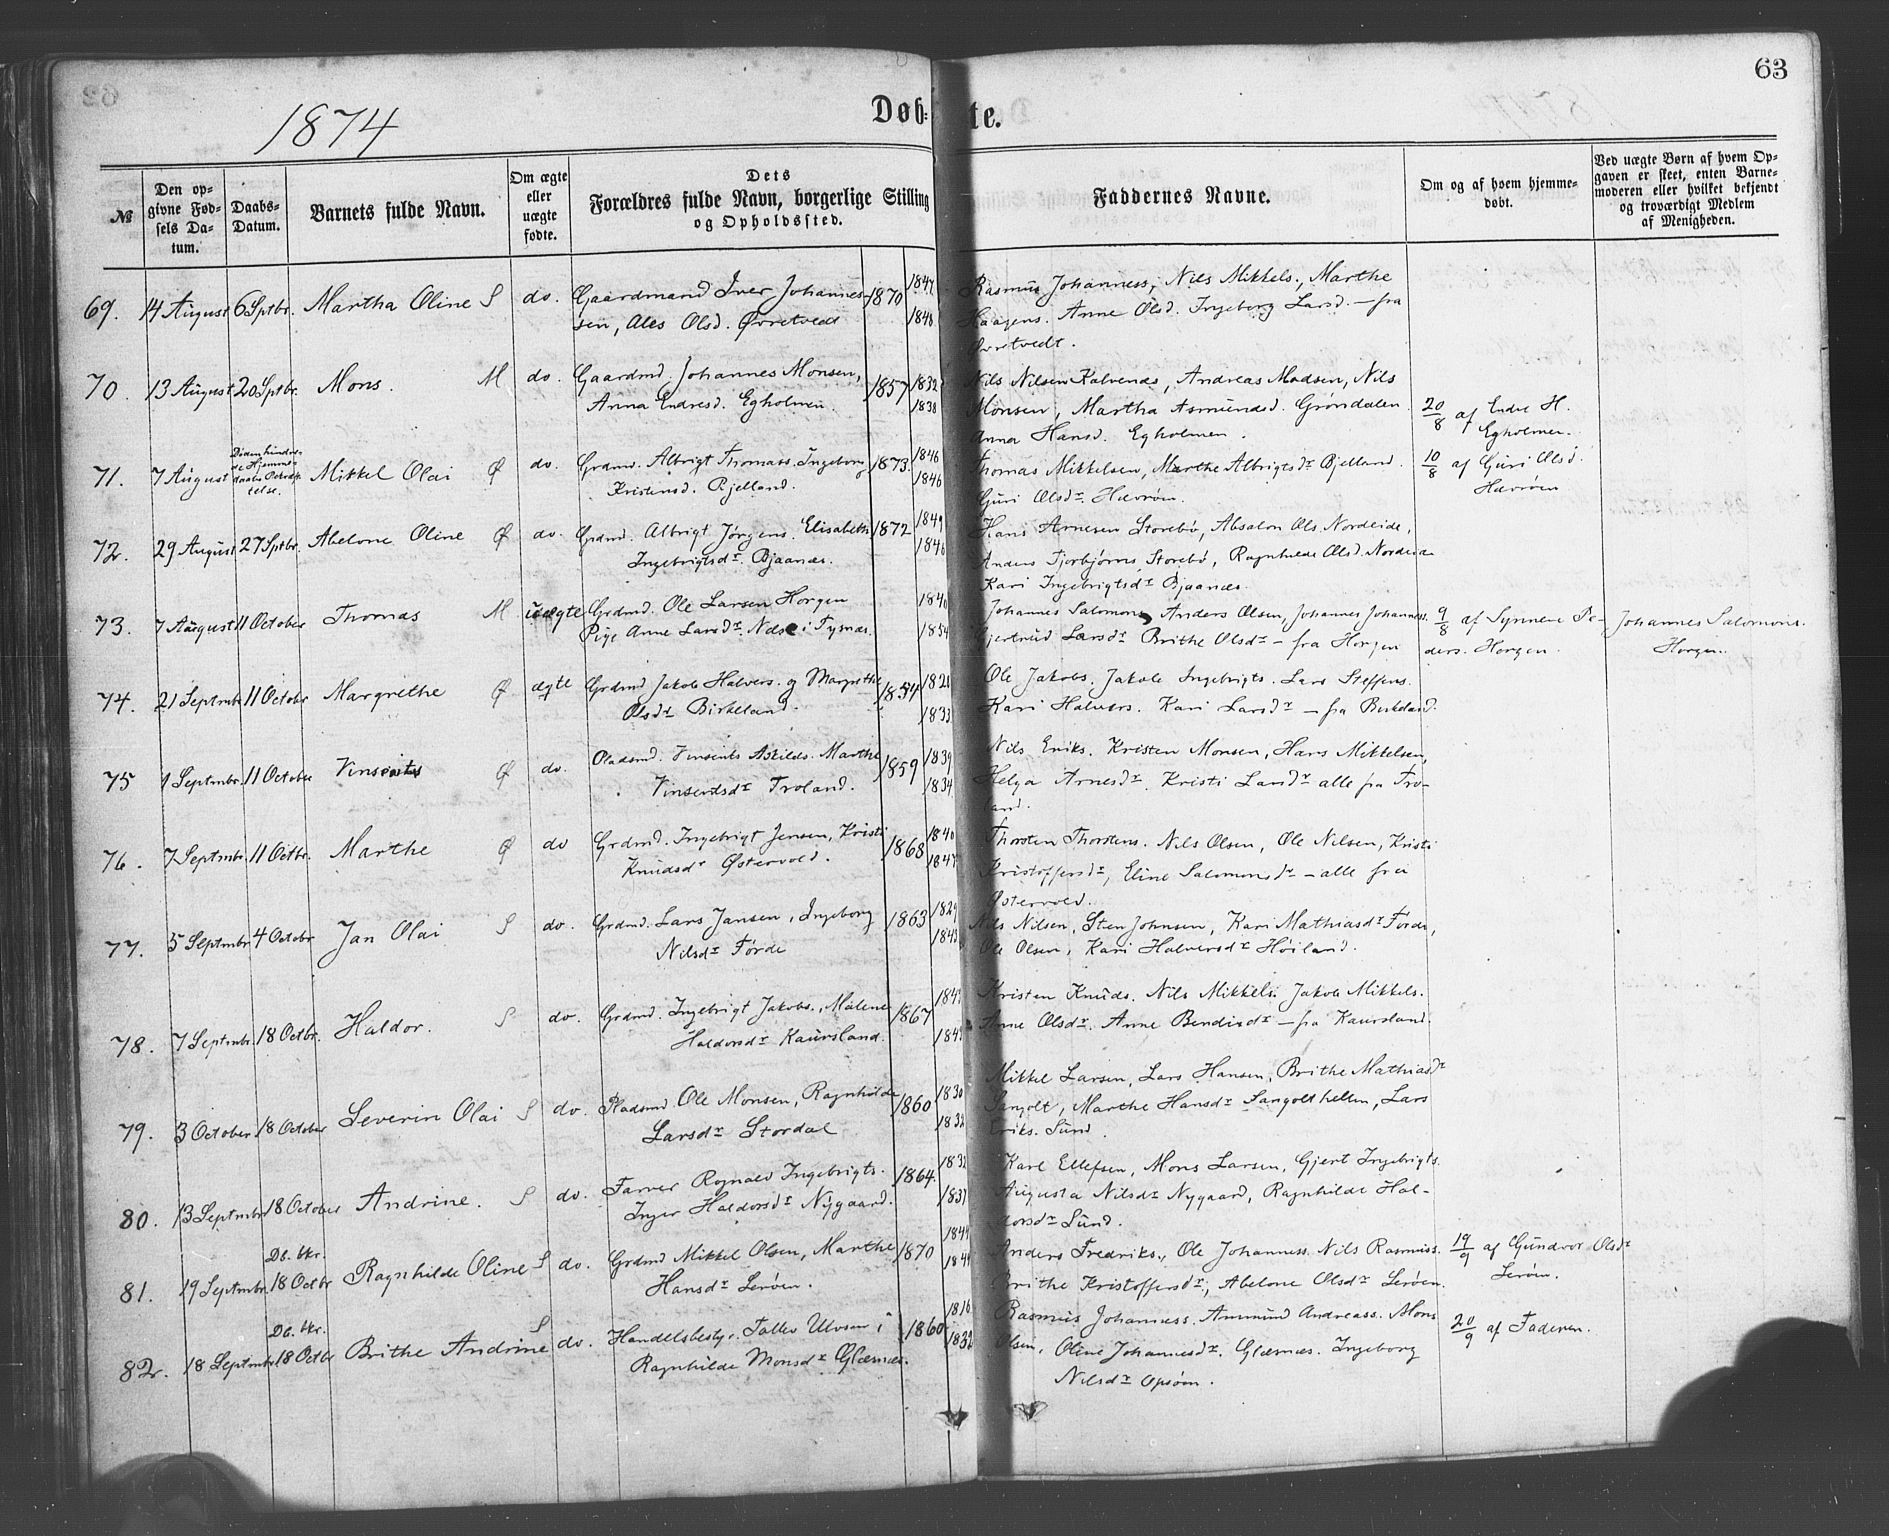 63
1874
Døb- te.
№
Den op-
givne Fød-
sels Da-
tum.
Daabs-
Datum.
Barnets fulde Navn.
Om ægte
eller
uægte
fødte.
Dets
Forældres fulde Navn, borgerlige Stilling
og Opholdssted.
Faddernes Navne.
Om og af hvem hjemme-
døbt.
Ved uægte Børn af hvem Op-
gaven er skeet, enten Barne-
moderen eller hvilket bekjendt
og troværdigt Medlem
af Menigheden.
69. 14 August 6 Sptbr. Martha Oline S do. Gaardmand Iver Johannes- 1870 1847
sen, Ales Olsd. Øvretvedt 1848
Rasmus Johanness, Nils Mikkels., Marthe
Haagens. Anne Olsd. Ingeborg Larsd. – fra
Øvretvedt.
70. 13 August 20 Sptbr. Mons. M do. Gaardmd. Johannes Monsen, 1857 1832
Anna Endresd. Egholmen. 1838
Nils Nilsen Kalvenes, Andreas Madsen, Nils
Monsen, Martha Asmundsd. Grøndalen
Anna Hansd. Egholmen.
20/8 af Endre H.
Egholmen.
71. 7 August
Mikkel Olai Ø do. Grdmd. Albrigt Thomass. Ingeborg 1873. 1846
Kristensd. Bjelland. 1846
Thomas Mikkelsen, Marthe Albrigtsdr Bjelland.
Guri Olsdr. Hævrøen.
10/8 af Guri Olsd.
Hævrøen
72. 29 August 27 Sptbr. Abelone Oline Ø do. Grdmd. Albrigt Jørgens. Elisabeth 1872 1849
Ingebrigtsdr. Bjaanæs. 1846
Hans Arnesen Storebø, Absalon Ols. Nordeide,
Anders Torbjørns. Storebø, Ragnhilde Olsd. Nordeide
Kari Ingebrigtsdr Bjaanæs.
73. 7 August 11 October Thomas M uægte Grdmd. Ole Larsen Horgen 1840
Pige Anne Larsdr. i Tysnæs. 1854
Johannes Salomons, Anders Olsen, Johannes Johanness.
Gjertrud Larsdr Brithe Olsdr – fra Horgen
9/8 af Synneve Pe-
ders. Horgen.
Johannes Salomons.
Horgen.
74. 21 Septmbr 11 Octobr Margrethe Ø ægte Grdmd Jakob Halvors. og Margrethe 1854 1828
Olsdr Birkeland. 1833
Ole Jakobs. Jakob Ingebrigts. Lars Steffens.
Kari Halvors. Kari Larsdr – fra Birkeland.
75 1 Septmbr. 11 October Vinsents Ø do. Pladsmd. Vinsents Askilds. Marthe 1859 1839
Vinsentsdr Troland. 1834
Nils Eriks. Kristen Monsen, Hans Mikkelsen,
Helga Arnesdr. Kristi Larsdr – alle fra Tro-
land.
76. 7 Septmbr. 11 Octbr. Marthe Ø do Grdmd. Ingebrigt Jensen, Kristi 1868 1840
Knudsdr Østervold. 1847
Thorsten Thorstens. Nils Olsen, Ole Nilsen, Kristi
Kristoffersdr, Eline Salomonsdr – alle fra
Østervold.
77. 5 Septmbr 4 Octobr Jan Olai S do. Grdmd. Lars Jansen, Ingeborg 1863 1829
Nilsdr Førde 1843
Nils Nilsen, Sten Johnsen, Kari Mathiasdr Førde,
Ole Olsen, Kari Halvorsdr Høiland.
78. 7 Septmbr. 18 Octbr. Haldor. S do. Grdmd. Ingebrigt Jakobs., Malene 1867
Haldorsdr Kaursland.
Kristen Knuds. Nils Mikkels. Jakob Mikkels.
Anne Olsdr. Anne Bendixdr – fra Kaursland.
79. 3 October 18 October Severin Olai S do. Pladsmd Ole Monsen, Ragnhilde 1860 1830
Larsdr Stordal 1832
Mikkel Larsen, Lars Hansen, Brithe Mathiasdr
Sangolt, Marthe Hansdr Sangolthellen, Lars
Eriks. Sund.
80. 13 Septmbr 18 October Andrine. S do. Farver Rognald Ingebrigts. 1864. 1832
Inger Haldorsdr Nygaard. 1837
Karl Ellefsen, Mons Larsen, Gjert Ingebrigts.
Augusta Nilsdr Nygaard, Ragnhilde Hal-
dorsdr Sund.
81. 19 Septmbr. Db. bkr. 18 Octbr Ragnhilde Oline S do. Grdmd Mikkel Olsen, Marthe 1870 1844
Hansdr Lerøen. 1844
Anders Fredriks., Ole Johanness. Nils Rasmuss.
Brithe Kristoffersdr, Abelone Olsdr Lerøen.
19/9 af Gundvor Olsdr
Lerøen.
82. 18 Septmbr Db. bkr. 18 Octbr Brithe Andrine S do. Handelsbesty. Tollev Ulvsen i 1860 1816
Ragnhilde Monsdr Glæsnæs. 1832
Rasmus Johanness. Ammund Andreass. Mons
Olsen, Oline Johannesdr. Glæsnæs. Ingeborg
Nilsdr Opsøen.
20/9 af Faderen.